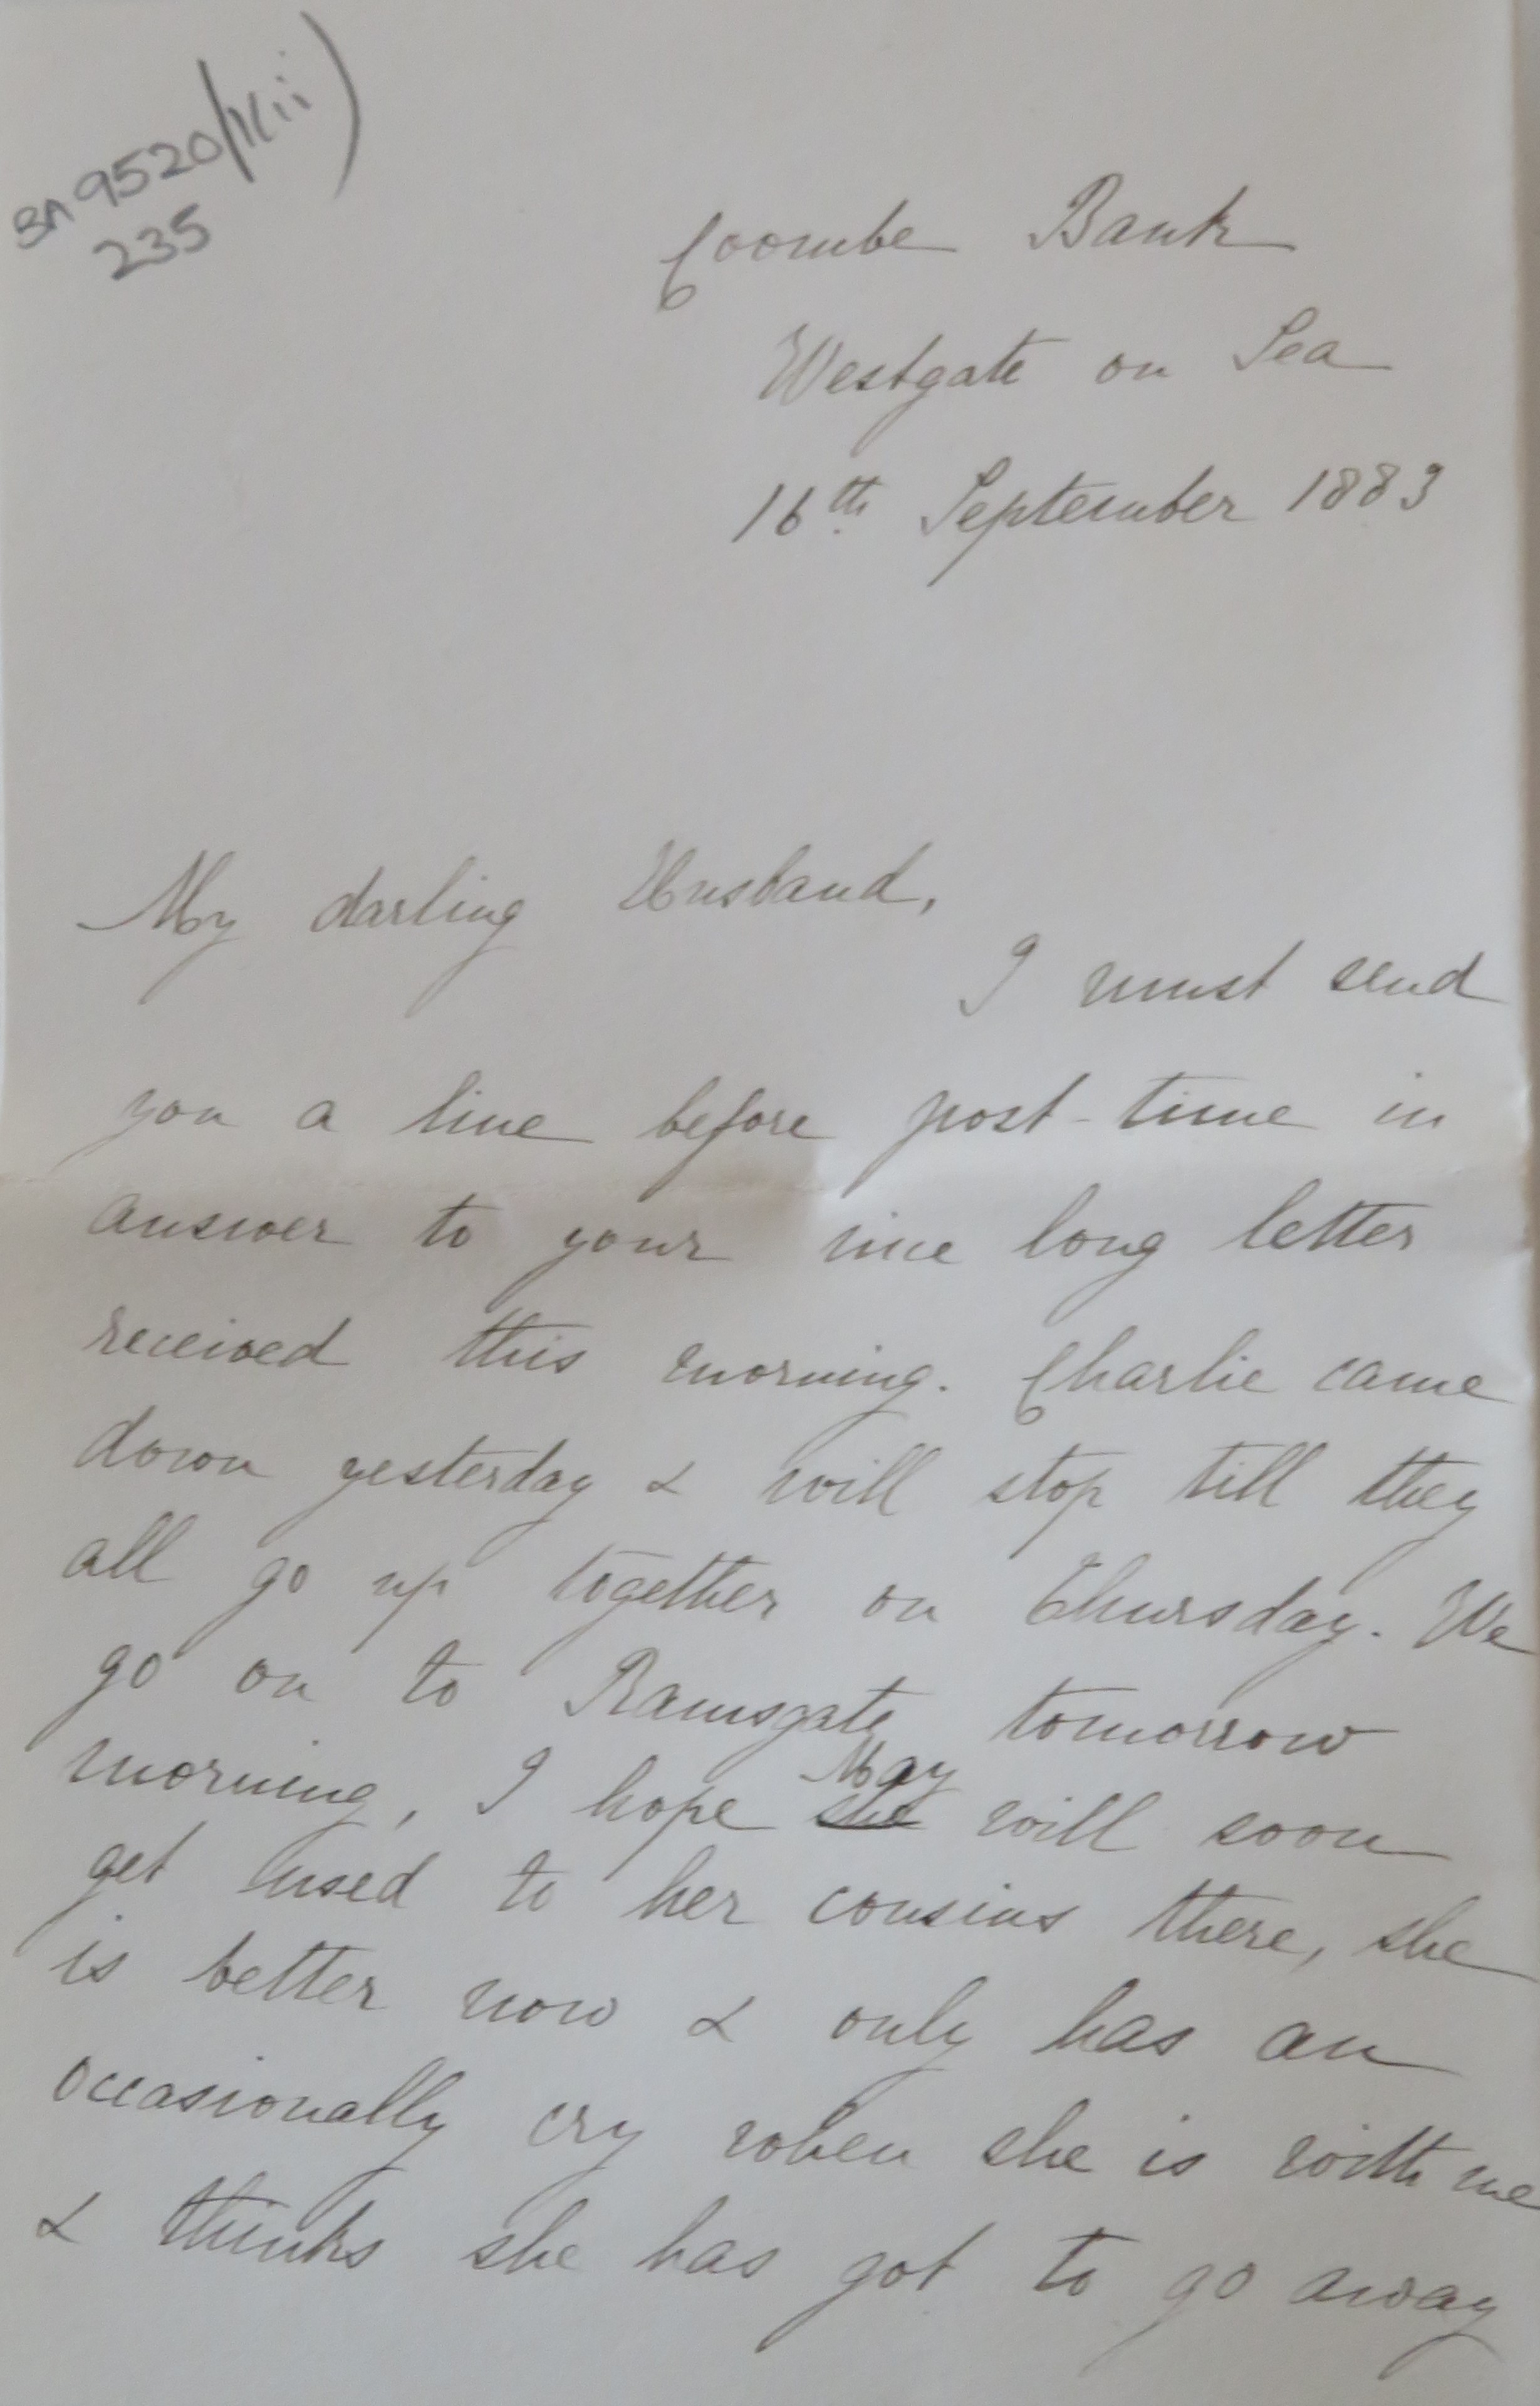 BA 9520/1(ii)
235
Coombe Bank
Westgate on Sea
16th September 1883
My darling Husband,
I must send
you a line before post-time in
answer to your nice long letter
received this morning. Charlie came
down yesterday & will stop till they
all go up together on Thursday. We
go on to Ramsgate tomorrow
May
morning, I hope she will soon
get used to her cousins there, she
is better now & only has an
occasionally cry when she is with me
& thinks she has got to go away